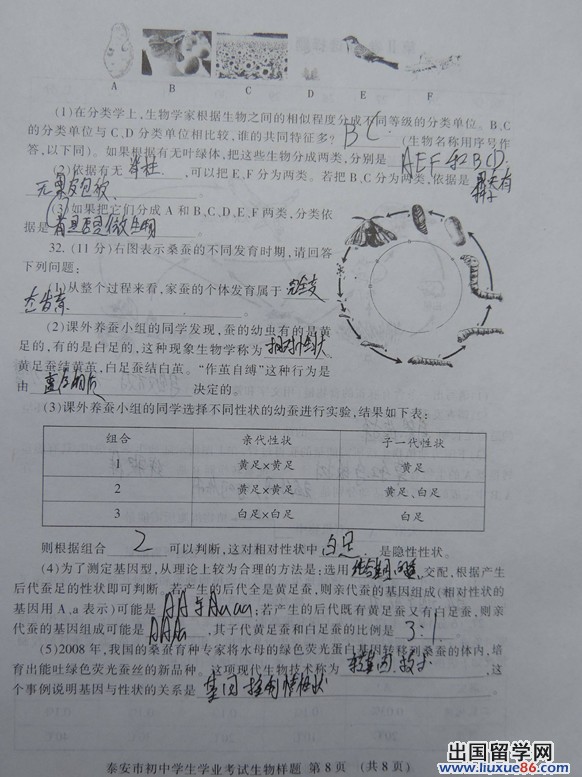 A B C D E F
(1)在分类学上,生物学家根据生物之间的相似程度分成不同等级的分类单位。B、C
的分类单位与C、D分类单位相比较,谁的共同特征多? BC (生物名称用序号作
答,以下同)。如果根据有无叶绿体,把这些生物分成两类,分别是 AEF和BCD.
(2)依据有无 脊柱 ,可以把E、F分为两类。若把B、C分为两类,依据是
无果皮包被
(3)如果把它们分成A和B、C、D、E、F两类,分类依
据是
32. (11分)右图表示桑蚕的不同发育时期,请回答
下列问题:
(1)从整个过程来看,家蚕的个体发育属于 完全变
态发育
(2)课外养蚕小组的同学发现,蚕的幼虫有的是黄
足的,有的是白足的,这种现象生物学称为 相对性状
黄足蚕结黄茧,白足蚕结白茧。“作茧自缚”这种行为是
由 遗传物质 决定的。
(3)课外养蚕小组的同学选择不同性状的幼蚕进行实验,结果如下表:
组合 亲代性状 子一代性状
1 黄足×黄足 黄足
2 黄足×黄足 黄足、白足
3 白足×白足 白足
则根据组合 2 可以判断,这对相对性状中 白足 是隐性性状。
(4)为了测定基因型,从理论上较为合理的方法是:选用 交配,根据产生
后代蚕足的性状即可判断。若产生的后代全是黄足蚕,则亲代蚕的基因组成(相对性状的
基因用A、a表示)可能是 ;若产生的后代既有黄足蚕又有白足蚕,则亲
代蚕的基因组成可能是 ,其子代黄足蚕和白足蚕的比例是 3:1
(5)2008年,我国的桑蚕育种专家将水母的绿色荧光蛋白基因转移到桑蚕的体内,培
育出能吐绿色荧光蚕丝的新品种。这项现代生物技术称为 转基因技术 ,这
个事例说明基因与性状的关系是 基因控制性状
泰安市初中学生学业考试生物样题 第8页 (共8页)
出国留学网
www.liuxue86.com